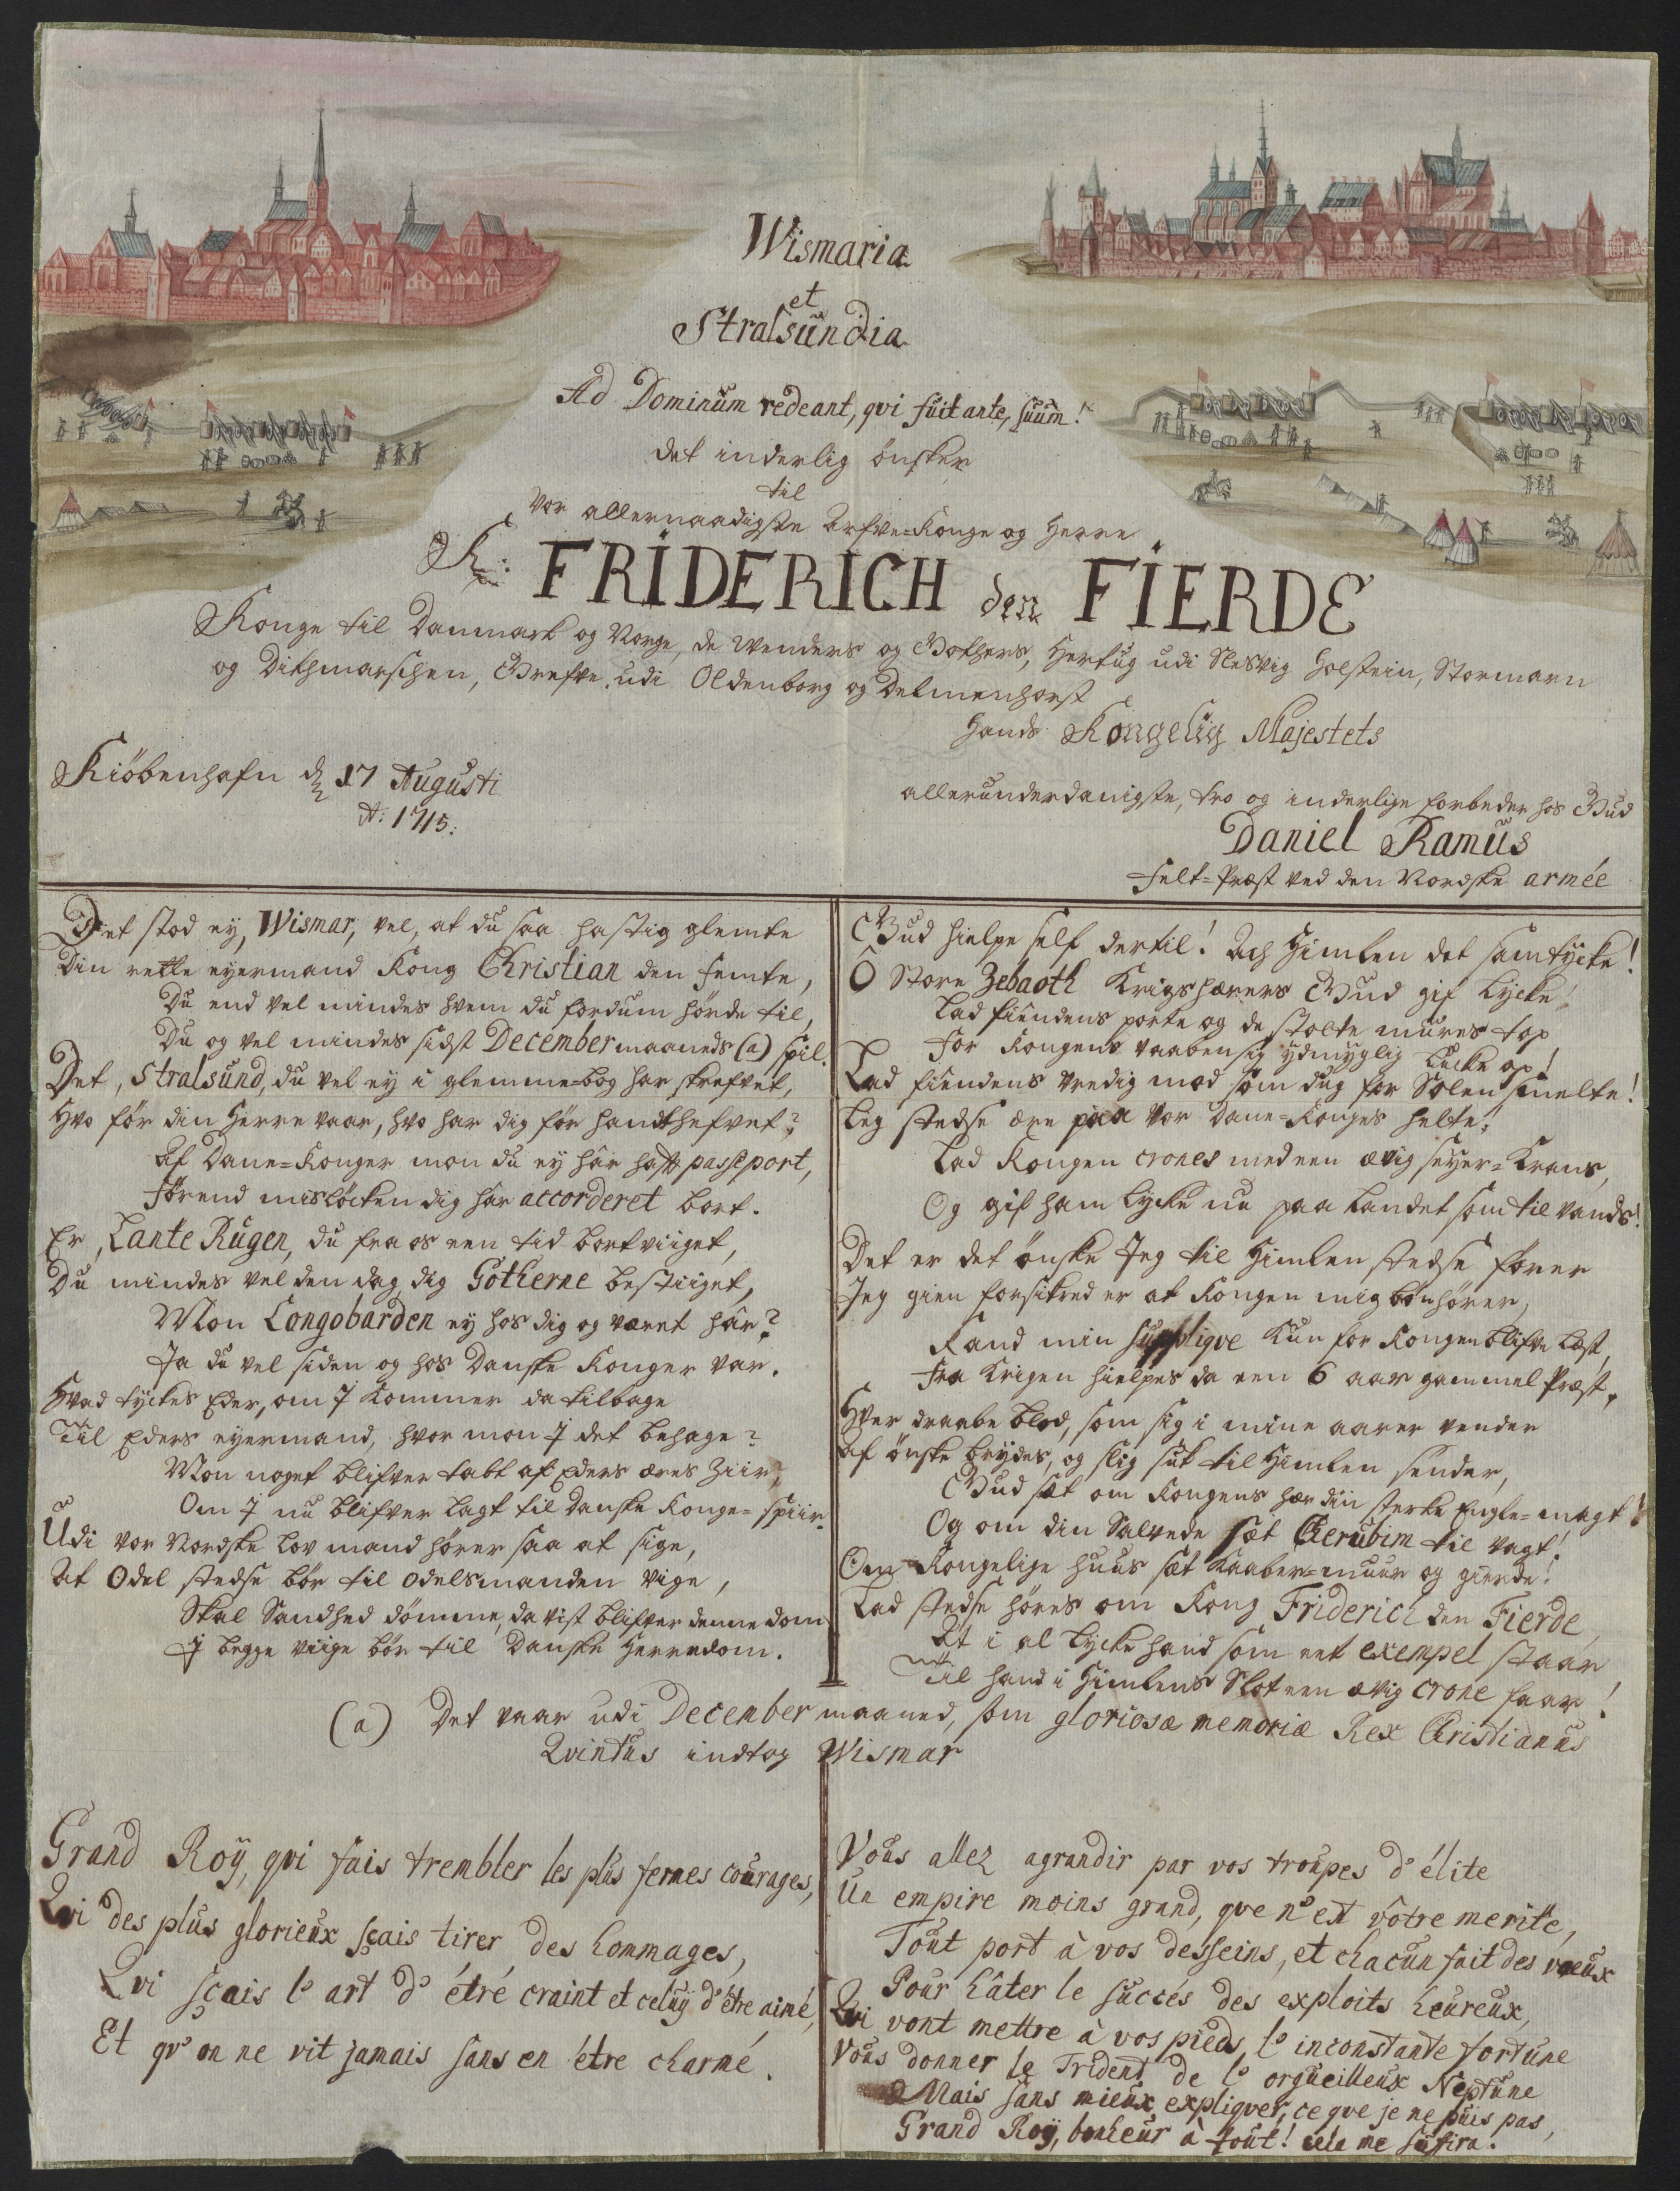 Wismaria
et
Stralsundia
Ad Dominum redeant, qvi fuit ante, suum!
det inderlig önsker
til
Vor allernaadigste Arfve-Konge og Herre
K: FRIDERICH den FIERDE
Konge til Danmark og Norge, de Wenders og Gothers, Hertug udi Slesvig Holstein, Stormarn
og Dithmarschen, Grefve udi Oldenborg og Delmenhorst
Hands Kongelig Majestets
Kiöbenhafn d 17 Augusti
A: 1715:
allerunderdanigste, tro og inderlige forbeder hos Gud
Daniel Ramus
Felt-Præst ved den Nordske armée
Det stod ey, Wismar, vel, at du saa hastig glemte
Din rette eyermand Kong Christian den femte,
Du end vel mindes hvem du fordum hörde til,
Du og vel mindes sidst December maaneds (a) spil.
Det, Stralsund, du vel ey i glemme-bog har skrefvet,
Hvo för din Herre vaar, hvo har dig för handthefvet?
Af Dane-Konger mon du ey här hafft passeport,
Förend mislöcken dig här accorderet bort.
Er, Lante Rügen, du fra os een tid bortviiget,
Du mindes vel den dag dig Gotherne bestiiget,
Mon Longobarden ey hos dig og været här?
Ja du vel siden og hos Danske Konger var.
Hvad tyckes Eder, om I kommer da tilbage
Til Eders eyermand, hvor mon I det behage?
Mon noget blifver tabt af Eders æres Ziir,
Om I nu blifver lagt til Danske Konge-spiir.
Udi vor Nordske Lov mand hörer saa at sige,
At Odel stedse bör til odelsmanden vige,
Skal Sandhed dömme, da vist blifver denne dom
I begge viige bör til Danske Herredom.
Gud hielpe self dertil! Ach Himlen det samtycke!
Ô Store Zebaoth Krigshærers Gud gif Lycke!
Lad fiendens porte og de stolte mures top
For Kongens vaaben sig ydmyglig lucke op!
Lad fiendens vredig mod som dug for Solen smelte!
Leg stedse ære paa vor Dane-Konges helte!
Lad Kongen crones med een ævig seyer-Krans,
Og gif ham Lycke nu paa Landet som til vands!
Det er det önske Jeg til Himlen stedse förer
Jeg gien forsikred er at Kongen mig bönhörer,
Kand min supliqve kun for Kongen blifve læst,
Fra Krigen hielpes da een 6 aar gammel Præst.
Hver draabe blod, som sig i mine aarer vender
Af önske brydes, og slig suk til Himlen sender,
Gud sæt om Kongens hær din sterke Engle-magt!
Og om din Salvede sæt Cherubim til vagt!
Om Kongelige huus sæt Kaaber-muur og gierde!
Lad stedse höres om Kong Friderich den Fierde
At i al Lycke hand som eet exempel staar
Til hand i Himlens Slot een ævig crone faar!
(a) Det vaar udi December maaned, som gloriosæ memoriæ Rex Christianus
Qvintus indtog Wismar
Grand Roÿ, qvi fais trembler les plus fermes courages,
Qvi des plus glorieux sçais tirer des hommages,
Qvi sçais l'art d'étré craint et celuÿ d'être aimé,
Et qv'on ne vit jamais sans en être charmé.
Vous allez agrandir par vos troupes d'élite
Un empire moins grand, qve n'est vôtre meritte,
Tout port à vos desseins, et chacun fait des voeux
Pour hâter le succés des exploits heureux,
Qvi vont mettre à vos pieds, l'inconstante fortune
Vous donner le Trident de l'orgueilleux Neptune
Mais sans mieux expliqver, ce qve je ne puis pas,
Grand Roÿ, bonheur à tout! cela me sufira.